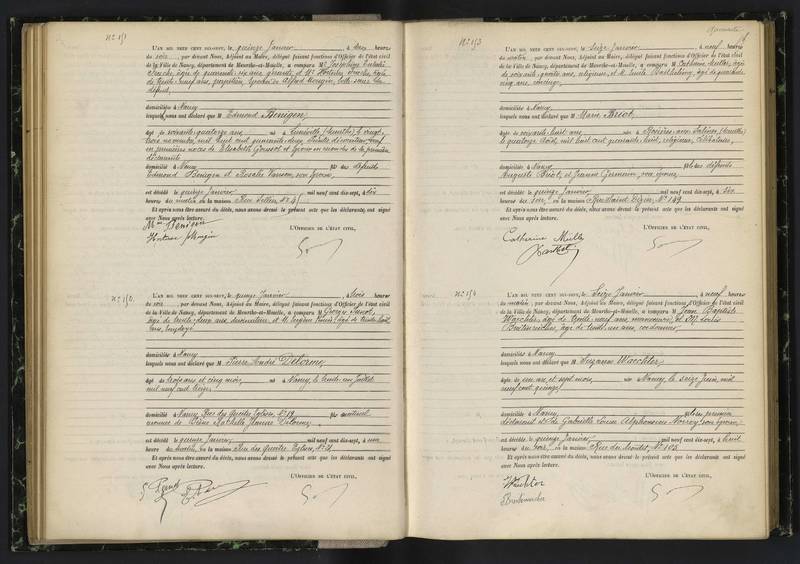 N° 151
L'AN MIL NEUF CENT DIX-SEPT, le quinze Janvier, à deux heures
du soir, par devant Nous, Adjoint au Maire, délégué faisant fonctions d'Officier de l'état civil
de la Ville de Nancy, département de Meurthe-et-Moselle, a comparu M
âgée de quarante six ans
de trente neuf ans, épouse de Alfred Mougin, belle sœur du
défunt,
domiciliés à Nancy
lesquels nous ont déclaré que M Edmond Benigen
âgé de soixante quatorze ans né à Lunéville (Meurthe) le vingt
trois novembre mil huit cent quarante deux,
en premières noces de Elisabeth Gousset et époux en secondes de la première
déclarante
domicilié à Nancy fils des défunts
Edmond Benigen et Rosalie son épouse,
est décédé le quinze Janvier mil neuf cent dix-sept, à six
heures du matin, en la maison Rue N° 45
Et après nous être assuré du décès, nous avons dressé le présent acte que les déclarants ont signé
avec Nous après lecture.
L'OFFICIER DE L'ÉTAT CIVIL,
Mme Benigen
Hortense Mougin
N° 152
L'AN MIL NEUF CENT DIX-SEPT, le quinze Janvier, à trois heures
du soir, par devant Nous, Adjoint au Maire, délégué faisant fonctions d'Officier de l'état civil
de la Ville de Nancy, département de Meurthe-et-Moselle, a comparu M Georges
âgé de trente deux ans et M Eugène âgé de trente huit
ans, employé
domiciliés à Nancy
lesquels nous ont déclaré que M Pierre André Delorme
âgé de trois ans et cinq mois, né à Nancy, le trente un Juillet
mil neuf cent treize,
domicilié à Nancy Rue des Quatre Eglises, N° 19 fils naturel
reconnu de Jeanne Delorme,
est décédé le quinze Janvier mil neuf cent dix-sept, à une
heure du matin, en la maison Rue des Quatre Eglises, N°
Et après nous être assuré du décès, nous avons dressé le présent acte que les déclarants ont signé
avec Nous après lecture.
L'OFFICIER DE L'ÉTAT CIVIL,
N° 153
L'AN MIL NEUF CENT DIX-SEPT, le seize Janvier, à neuf heures
du matin, par devant Nous, Adjoint au Maire, délégué faisant fonctions d'Officier de l'état civil
de la Ville de Nancy, département de Meurthe-et-Moselle, a comparu M Catherine Muller, âgée
de soixante quatre ans, religieuse, et M Emile Barthélemy, âgé de quarante
cinq ans, concierge,
domiciliés à Nancy
lesquels nous ont déclaré que M Marie Briot,
âgée de soixante huit ans née à Rosières aux Salines (Meurthe)
le quatorze Août, mil huit cent quarante huit, religieuse, célibataire,
domiciliée à Nancy fille des défunts
Auguste Briot et Jeanne Germain, son épouse,
est décédée le quinze Janvier mil neuf cent dix-sept, à six
heures du soir, en la maison Rue Saint Dizier, N° 149
Et après nous être assuré du décès, nous avons dressé le présent acte que les déclarants ont signé
avec Nous après lecture.
L'OFFICIER DE L'ÉTAT CIVIL,
Catherine Muller
N° 154
L'AN MIL NEUF CENT DIX-SEPT, le Seize Janvier, à neuf heures
du matin, par devant Nous, Adjoint au Maire, délégué faisant fonctions d'Officier de l'état civil
de la Ville de Nancy, département de Meurthe-et-Moselle, a comparu M Jean Baptiste
Waechter, âgé de trente neuf ans manœuvre, et M Louis
âgé de trente un ans cordonnier
domiciliés à Nancy
lesquels nous ont déclaré que M Suzanne Waechter,
âgée de un an et sept mois, née à Nancy, le seize Juin, mil
neuf cent quinze,
domiciliée à Nancy fille du premier
déclarant et de Gabrielle Louise Alphonsine son épouse,
est décédée le quinze Janvier mil neuf cent dix-sept, à huit
heures du soir, en la maison Rue N° 103
Et après nous être assuré du décès, nous avons dressé le présent acte que les déclarants ont signé
avec Nous après lecture.
L'OFFICIER DE L'ÉTAT CIVIL,
Waechter